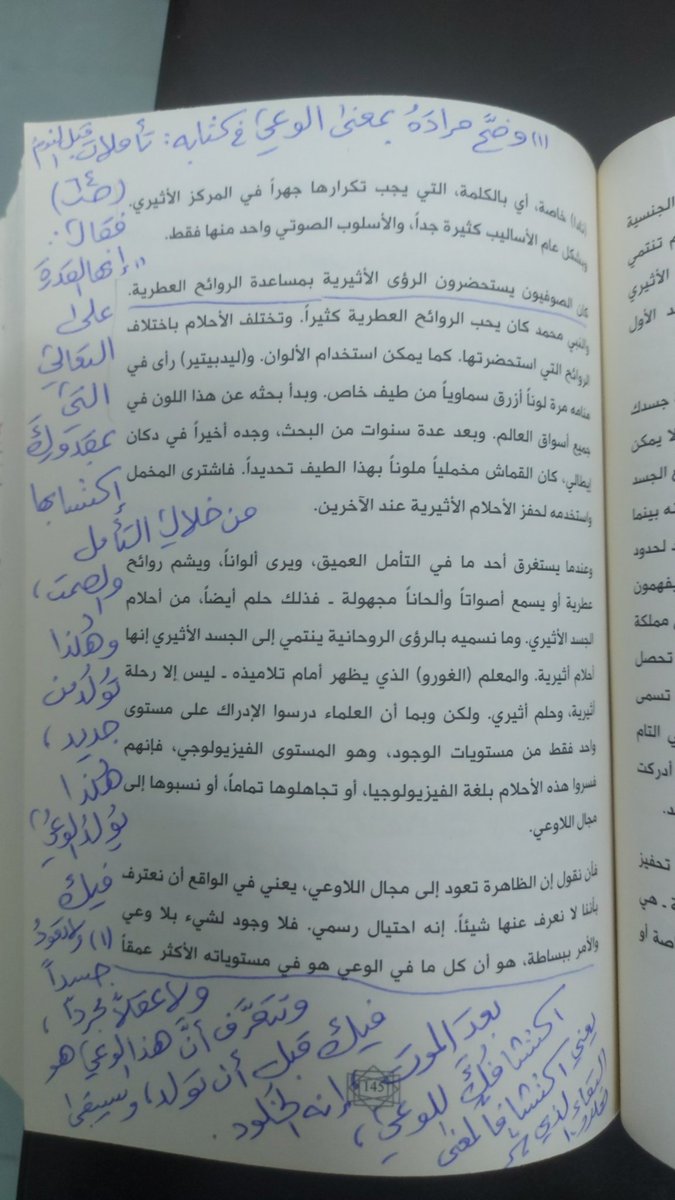 (١) وضَّح مرادَهُ بمعنى الوعي في كتابه: تأملات قبل النوم
(ص٦٤)
فقال:
"إنها القدرة
على
التعالي
التي
بمقدورك
إكتسابها
من خلال التأمل
والصمت،
وهكذا
تُولَد من
جديد،
هكذا
يُولد الوعي
فيك
(١) ولا تعود
جسداً
ولا عقلاً مجرداً،
وتتعرَّف أنَّ هذا الوعي هو
فيك قبل أن تولد، وسيبقى
بعد الموت إنه الخلود.
اكتشافُكَ للوعي،
يعني اكتشافاً لمعنى
البقاء الذي
خاصة، أي بالكلمة، التي يجب تكرارها جهراً في المركز الأثيري.
وبشكل عام الأساليب كثيرة جداً، والأسلوب الصوتي واحد منها فقط.
كان الصوفيون يستحضرون الرؤى الأثيرية بمساعدة الروائح العطرية.
والنبي محمد كان يحب الروائح العطرية كثيراً. وتختلف الأحلام باختلاف
الروائح التي استحضرتها. كما يمكن استخدام الألوان. و(ليدبيتير) رأى في
منامه مرة لوناً أزرق سماوياً من طيف خاص. وبدأ بحثه عن هذا اللون في
جميع أسواق العالم. وبعد عدة سنوات من البحث، وجده أخيراً في دكان
إيطالي، كان القماش مخملياً ملوناً بهذا الطيف تحديداً. فاشترى المخمل
واستخدمه لحفز الأحلام الأثيرية عند الآخرين.
وعندما يستغرق أحد ما في التأمل العميق، ويرى ألواناً، ويشم روائح
عطرية أو يسمع أصواتاً وألحاناً مجهولة ـ فذلك حلم أيضاً، من أحلام
الجسد الأثيري. وما نسميه بالرؤى الروحانية ينتمي إلى الجسد الأثيري إنها
أحلام أثيرية. والمعلم (الغورو) الذي يظهر أمام تلاميذه ـ ليس إلا رحلة
أثيرية، وحلم أثيري. ولكن وبما أن العلماء درسوا الإدراك على مستوى
واحد فقط من مستويات الوجود، وهو المستوى الفيزيولوجي، فإنهم
فسروا هذه الأحلام بلغة الفيزيولوجيا، أو تجاهلوها تماماً، أو نسبوها إلى
مجال اللاوعي.
فأن نقول إن الظاهرة تعود إلى مجال اللاوعي، يعني في الواقع أن نعترف
بأننا لا نعرف عنها شيئاً. إنه احتيال رسمي. فلا وجود لشيء بلا وعي
والأمر ببساطة، هو أن كل ما في الوعي هو في مستوياته الأكثر عمقاً
145
الجنسية
م تنتمي
الأثيري
عد الأول
جسدك
لا يمكن
ع الجسد
نه بينما
د لحدود
يفهمون
مملكة
تحصل
تسمى
ي التام
أدركت
د.
تحفيز
ة ـ هي
اصة أو